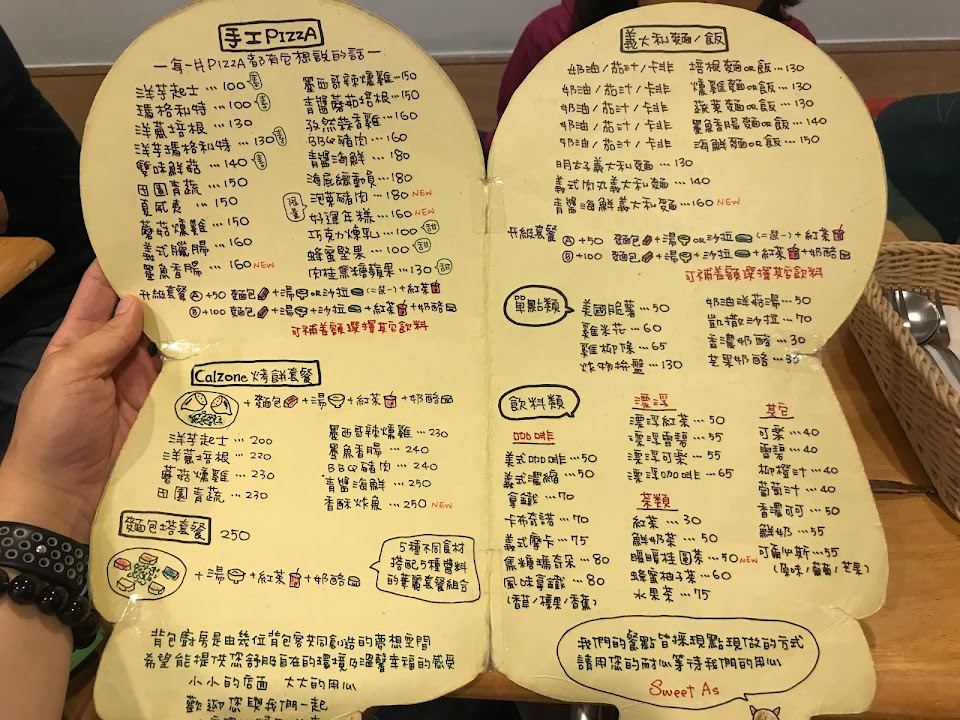 手工PIZZA
—每一片PIZZA都有它想說的話—
洋芋起士…100 素
瑪格利特…100 素
洋蔥培根…130
洋芋瑪格利特…130 素
雙味鮮菇…140 素
田園青蔬…150
夏威夷…150
蘑菇燻雞…150
義式臘腸…160
墨魚香腸…160 NEW
墨西哥辣燻雞…150
青醬蘑菇培根…150
孜然蒜香雞…160
BBQ豬肉…160
青醬海鮮…180
海底總動員…180
泡菜豬肉…180 NEW
好運年糕…160 NEW
巧克力煉乳…100 甜
蜂蜜堅果…100 甜
肉桂焦糖蘋果…130 甜
升級套餐 A +50 麵包+湯or沙拉(二選一)+紅茶
B +100 麵包+湯+沙拉+紅茶+奶酪
可補差額選擇其它飲料
Calzone 烤餅套餐
+麵包+湯+紅茶+奶酪
洋芋起士…200
洋蔥培根…220
蘑菇燻雞…230
田園青蔬…230
墨西哥辣燻雞…230
墨魚香腸…240
BBQ豬肉…240
青醬海鮮…250
香酥炸魚…250 NEW
麵包塔套餐 250
+湯+紅茶+奶酪
5種不同食材
搭配5種醬料
的華麗套餐組合
背包廚房是由幾位背包客共同創造的夢想空間
希望能提供您舒服自在的環境及溫馨幸福的感受
小小的店面 大大的用心
歡迎您與我們一起
義大利麵/飯
奶油/茄汁/卡非 培根麵or飯…130
奶油/茄汁/卡非 燻雞麵or飯…130
奶油/茄汁/卡非 蔬菜麵or飯…130
奶油/茄汁/卡非 墨魚香腸麵or飯…140
奶油/茄汁/卡非 海鮮麵or飯…150
明太子義大利麵…130
義式肉丸義大利麵…140
青醬海鮮義大利麵…160 NEW
升級套餐 A +50 麵包+湯or沙拉(二選一)+紅茶
B +100 麵包+湯+沙拉+紅茶+奶酪
可補差額選擇其它飲料
單點類
美國脆薯…50
雞米花…60
雞柳條…65
炸物拚盤…130
奶油洋菇湯…50
凱撒沙拉…70
香濃奶酪…30
芒果奶酪…30
飲料類
咖啡
美式咖啡…50
美式濃縮…50
拿鐵…70
卡布奇諾…70
義式摩卡…75
焦糖瑪奇朵…80
風味拿鐵…80
(香草/榛果/香蕉)
漂浮
漂浮紅茶…50
漂浮雪碧…55
漂浮可樂…55
漂浮咖啡…65
茶類
紅茶…30
鮮奶茶…50
暖暖桂圓茶…50 NEW
蜂蜜柚子茶…60
水果茶…75
其它
可樂…40
雪碧…40
柳橙汁…40
葡萄汁…40
香濃可可…50
鮮奶…55
可爾必斯…55
(原味/葡萄/芒果)
我們的餐點皆採現點現做的方式
請用您的耐心等待我們的用心
Sweet As